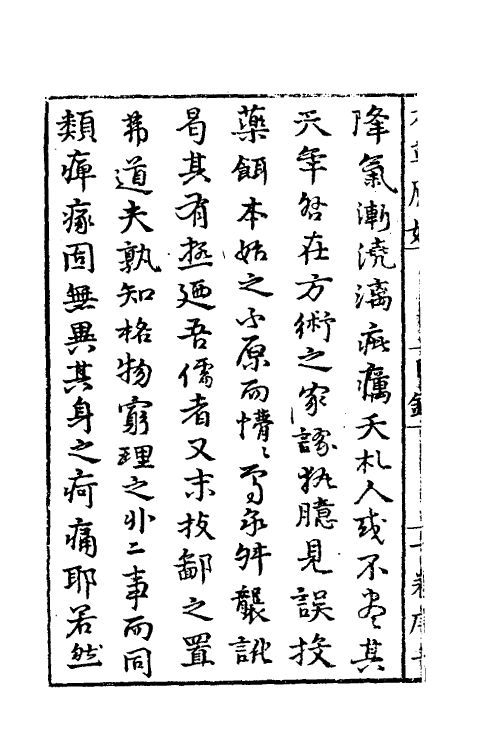 降氣漸澆漓疵癘夭札人或不盡其
天年咎在方術之家謬執臆見誤投
藥餌本始之不原而懵〻焉承舛襲訛
曷其有極廼吾儒者又末技鄙之置
弗道夫孰知格物窮理之外二事而同
類痺瘃固無異其身之疴痛耶若然